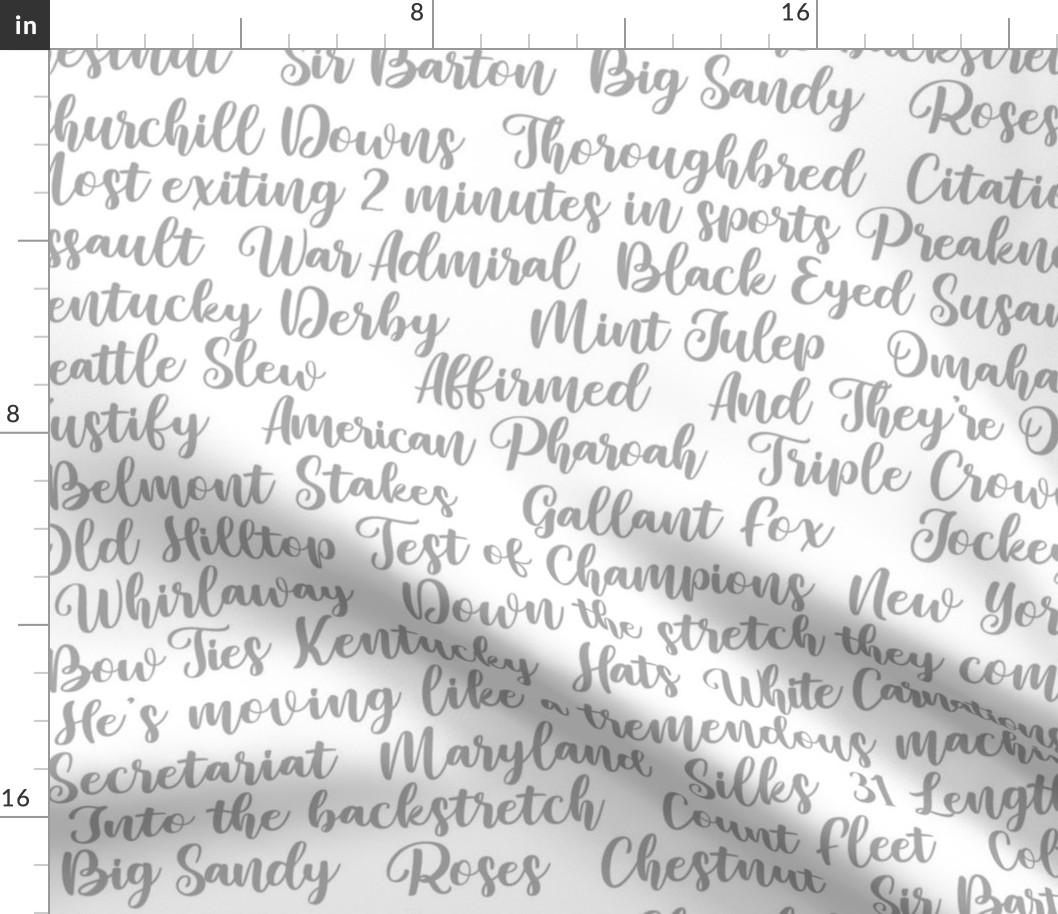 in 8 16
8
16
estnut Sir Barton Big Sandy Roses
hurchill Downs Thoroughbred Citatio
ost exiting 2 minutes in sports Preakn
ssault War Admiral Black Eyed Susa
entucky Derby Mint Julep Omaha
eattle Slew Affirmed And They're O
ustify American Pharoah Triple Crow
Belmont Stakes Gallant Fox Jocke
Old Hilltop Test of Champions New Yor
Whirlaway Down the stretch they com
Bow Ties Kentucky Hats White Carnations
He's moving like a tremendous machin
Secretariat Maryland Silks 31 Length
Into the backstretch Count Fleet Col
Big Sandy Roses Chestnut Sir Bart